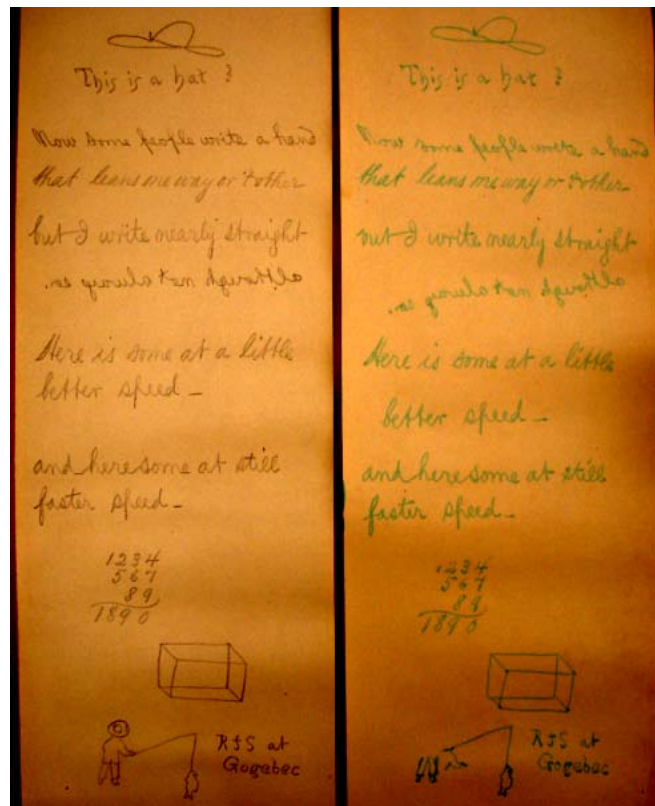 This is a hat ?
Now some people write a hand
that leans one way or t'other
but I write nearly straight
although not always so.
Here is some at a little
better speed –
and here some at still
faster speed –
1234
567
89
1890
RJS at
Gogebec
This is a hat ?
Now some people write a hand
that leans one way or t'other
but I write nearly straight
although not always so.
Here is some at a little
better speed –
and here some at still
faster speed –
1234
567
89
1890
RJS at
Gogebec